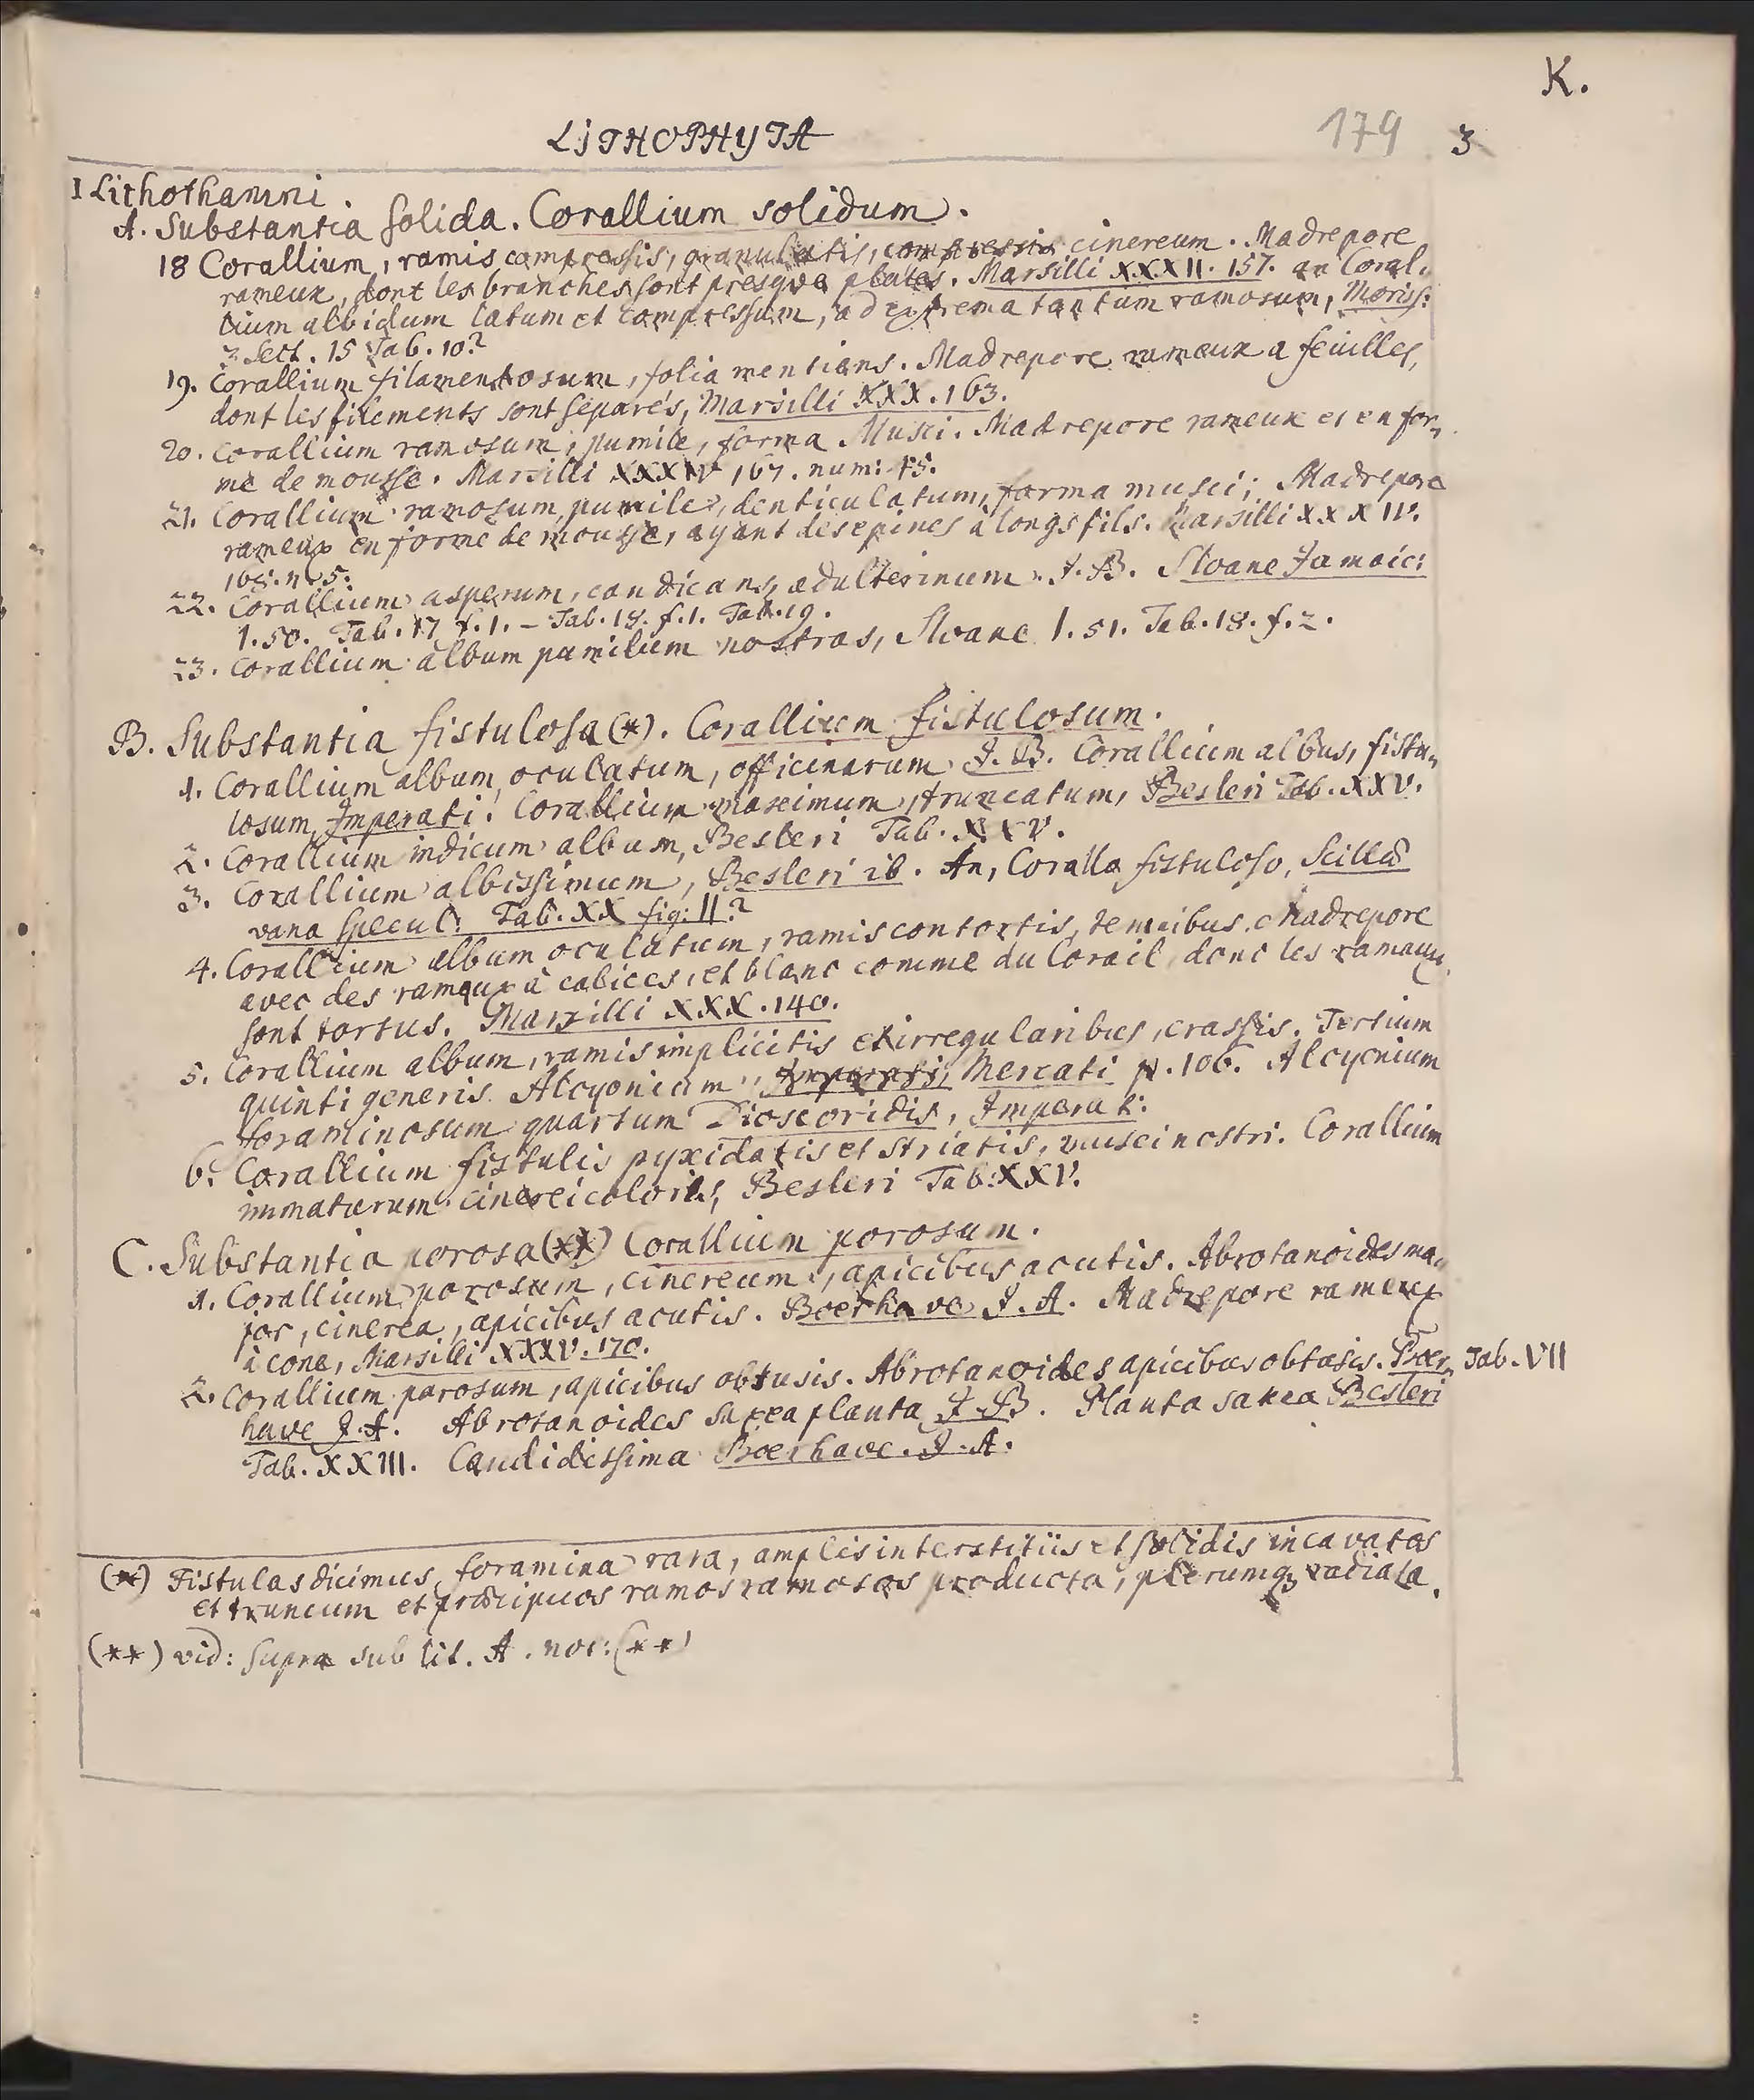 K.
LiTHOPHyTA
179 3
I Lithothamni.
A. Substantia solida. Corallium solidum.
18 Corallium, ramis compressis, granulatis, compressis cinereum. Madrepore
rameux, dont les branches sont presque plates. Marsilli XXXII. 157. an Coral„
lium albidum latum et compressum, ad extrema tantum ramosum, Moriss:
3 Sect. 15 Tab. 10?
19. Corallium filamentosum, folia mentiens. Madrepore rameux a feuilles,
dont les filements sont separés, Marsilli XXX. 163.
20. Corallium ramosum, pumile, forma Musci. Madrepore rameux et en for„
me de mousse. Marsilli XXXIV 167. num:
21. Corallium ramosum, pumile, denticulatum, forma musci; Madrepore
rameux en forme de mousse, ayant des epines à longs fils. Marsilli XXXIV.
168. n 5.
22. Corallium asperum, candicans, adulterinum. J. B. Sloane Jamaic:
1. 50. Tab. 17 f. 1. – Tab. 18. f. 1. Tab. 19.
23. Corallium album pumilum nostras, Sloane 1. 51. Tab. 18. f. 2.
B. Substantia fistulosa (*). Corallium fistulosum.
1. Corallium album, oculatum, officinarum J. B. Corallium albus, fistu„
losum, Imperati. Corallium maximum, truncatum, Besleri Tab. XXV.
2. Corallium indicum album, Besleri Tab. XXV.
3. Corallium albissimum, Besleri ib. An, Corallo fistuloso, Scilla
vana specul: Tab. XX fig: II?
4. Corallium album oculatum, ramis contortis, tenuibus. Madrepore
avec des rameaux à calices, et blanc comme du Corail, dont les rameaux
sont tortus. Marsilli XXX. 140.
5. Corallium album, ramis implicitis et irregularibus, crassis. Tertium
quinti generis Alcyonium, Imperati, Mercati p. 106. Alcyonium
foraminosum quartum Dioscoridis, Imperati:
6. Corallium fistulis pyxidatis et striatis, musei nostri. Corallium
immaturum cinerei coloris, Besleri Tab: XXV.
C. Substantia porosa (**) Corallium porosum.
1. Corallium porosum, cinereum, apicibus acutis. Abrotanoides ma„
jor, cinerea, apicibus acutis. Boerhave J. A. Madrepore rameux
à cone, Marsilli XXXV. 170.
2. Corallium porosum, apicibus obtusis. Abrotanoides apicibus obtusis. Boer„ Tab. VII
have J. A. Abrotanoides saxea planta J. B. Planta saxea Besleri
Tab. XXIII. Candidissima Boerhave. J. A.
(*) Fistulas dicimus, foramina rara, amplis interstitiis et solidis incavatas
et truncum et præcipuos ramos ramosos producta, plerumq; radiata.
(**) vid: supra sub lit. A. not: (**)